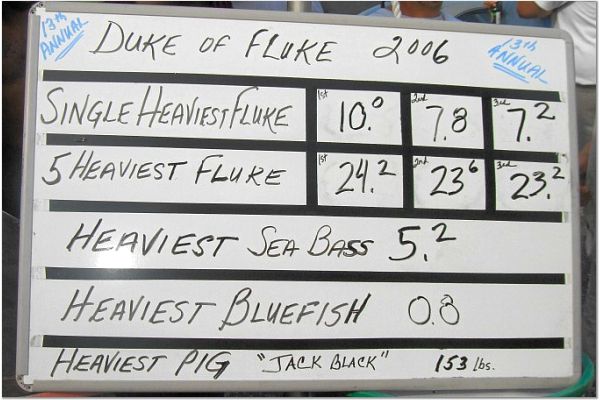 13th ANNUAL DUKE OF FLUKE 2006 13th ANNUAL
SINGLE HEAVIEST FLUKE 1st 10.0 2nd 7.8 3rd 7.2
5 HEAVIEST FLUKE 1st 24.2 2nd 23.6 3rd 23.2
HEAVIEST SEA BASS 5.2
HEAVIEST BLUEFISH 0.8
HEAVIEST PIG "JACK BLACK" 153 lbs.